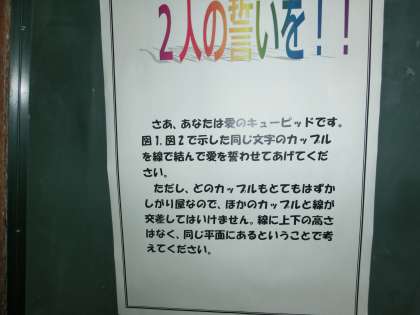 ２人の誓いを！！
さあ、あなたは愛のキューピッドです。
図１.図２で示した同じ文字のカップル
を線で結んで愛を誓わせてあげてくだ
さい。
ただし、どのカップルもとてもはずか
しがり屋なので、ほかのカップルと線が
交差してはいけません。線に上下の高さ
はなく、同じ平面にあるということで考
えてください。